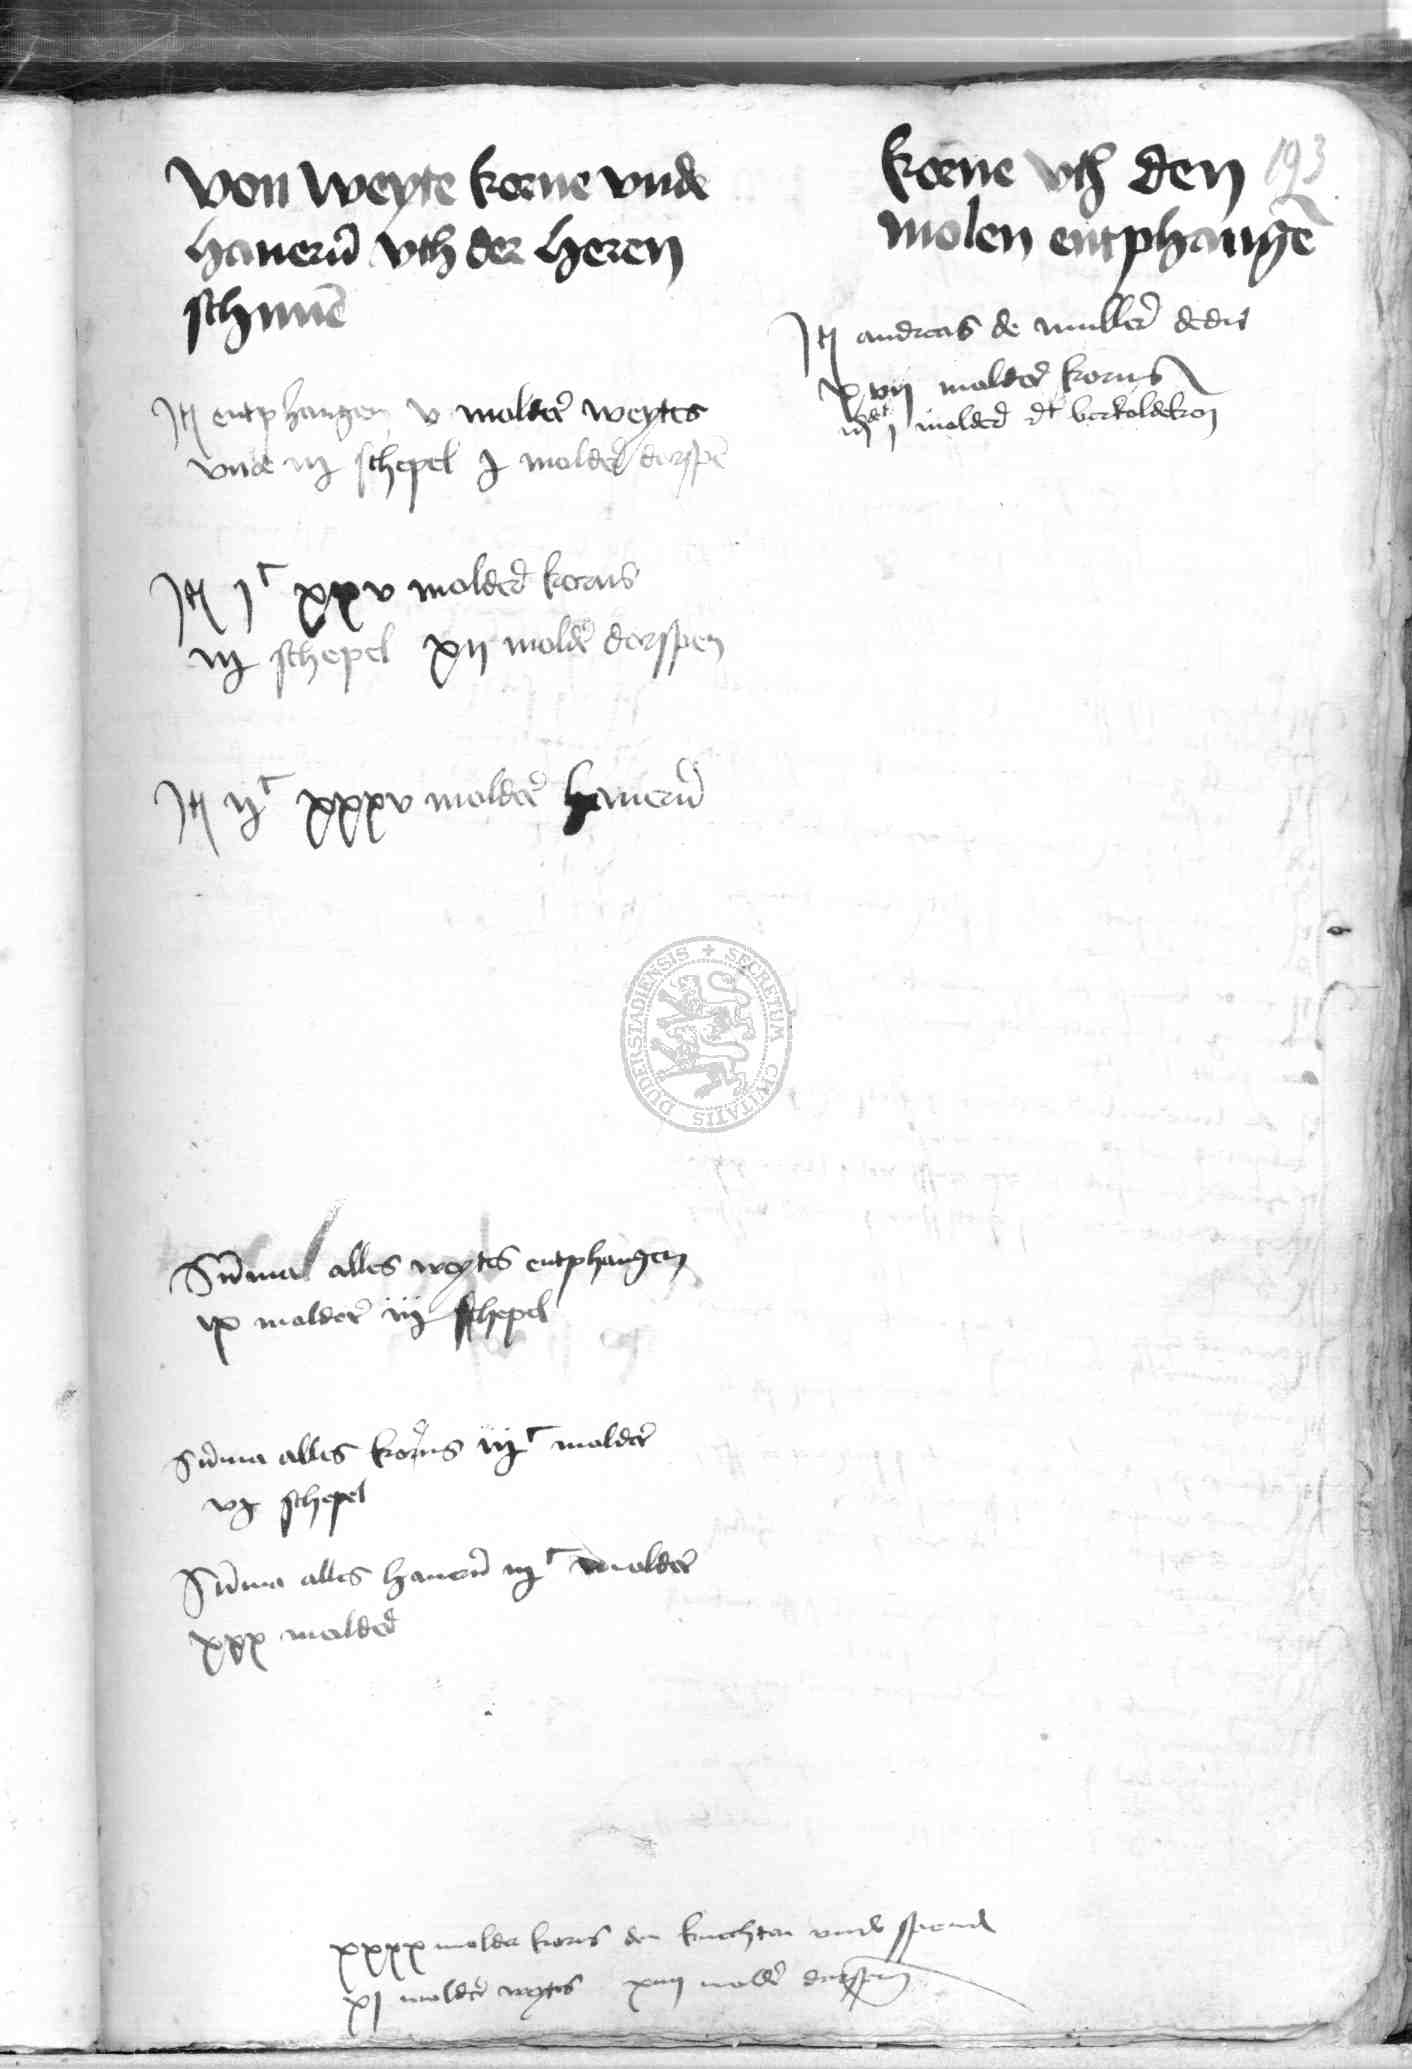 Von weyte korne vnde
hauern̄ vth der heren
schunē
Itē entphangen v molder̄ weytes
vnde iij schepel j molder̄ dorspē
Itē jᶜ xxv molder̄ korns
iij schepel xij molder̄ dorspen
Itē ijᶜ xxxv molder̄ hauern̄
Sum̄ma alles weytes entphangen
ix molder̄ iij schepel
Sum̄ma alles korns iijᶜ molder̄
vj schepel
Sum̄ma alles hauern̄ iijᶜ molder̄
xxx molder̄
193
korne vth den
molen entphangē
Itē andreas de muller̄ dedit
xvij molder̄ korns
molder̄ dt
xxxx molder korns den knechten vnde spende
xj molder̄ weytes xiiij molder̄ dorspen
SECRETUM CIVITATIS DUDERSTADIENSIS